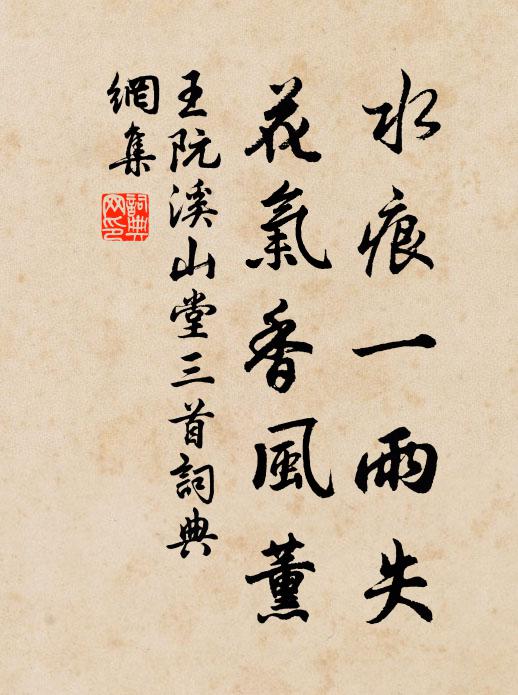 水痕一雨失
花氣香風薰
王阮溪山堂三首詞典
網集
詞典
网印